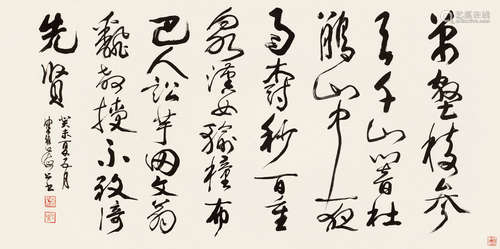 萬壑樹參
天千山響杜
鵑山中一夜
雨樹杪百重
泉漢女輸橦布
巴人訟芋田文翁
翻教授不敢倚
先賢
癸未夏五月